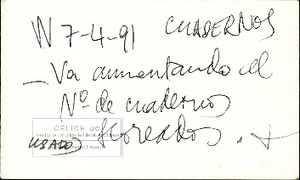 IV 7-4-91 CUADERNOS
— Va aumentando el
Nº de cuadernos
CELICH UC
USADO